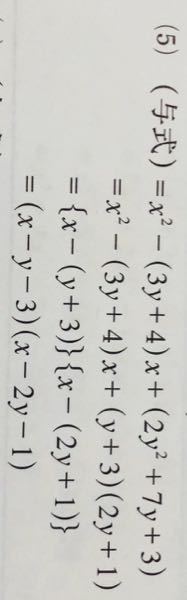 (5) (与式)=x²-(3y+4)x+(2y²+7y+3)
=x²-(3y+4)x+(y+3)(2y+1)
={x-(y+3)}{x-(2y+1)}
=(x-y-3)(x-2y-1)